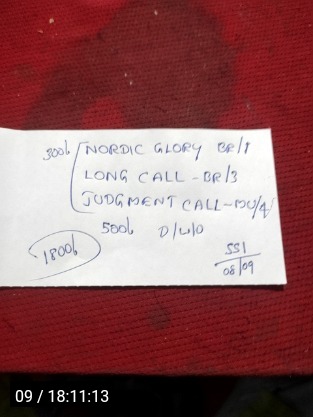 300/ NORDIC GLORY BR/1
LONG CALL - BR/3
JUDGMENT CALL - DU/4
500/ D/U/O
1800/
SS1
08/09
09 / 18:11:13